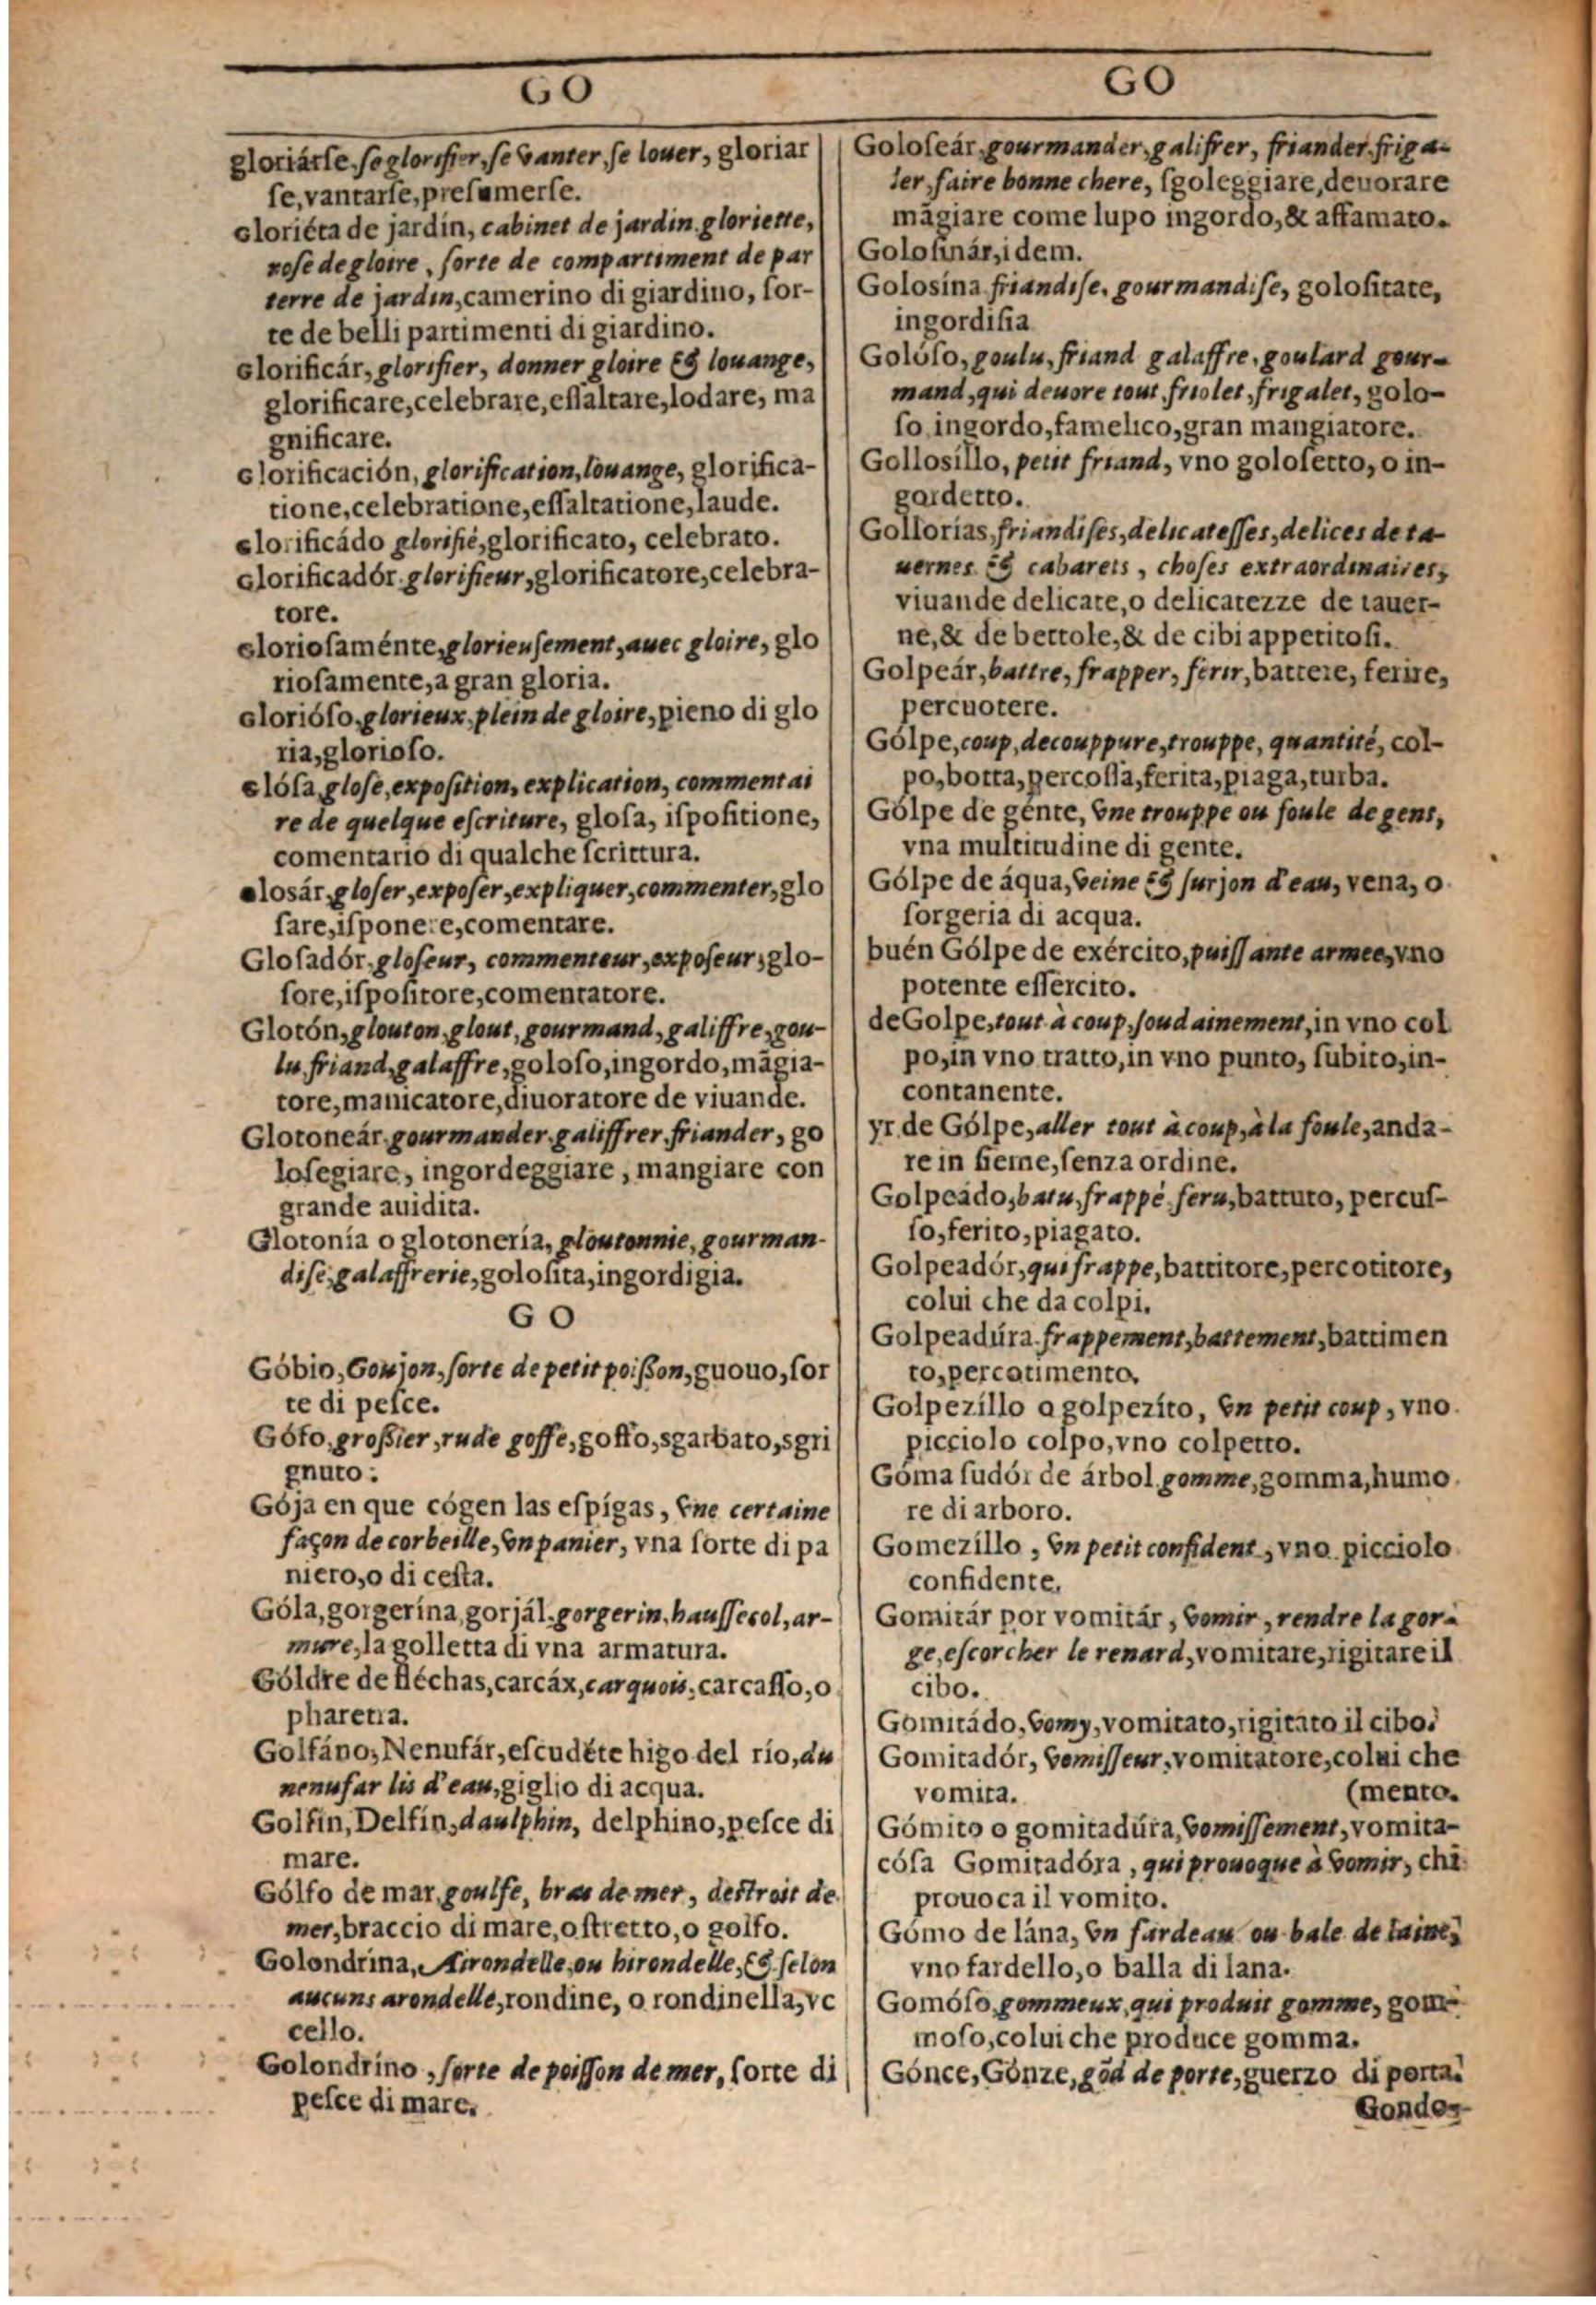 GO
gloriárse, se glorifier, se vanter, se louer, gloriar
se, vantarse, presumerse.
Gloriéta de jardín, cabinet de jardin, gloriette,
rose de gloire, sorte de compartiment de par
terre de jardin, camerino di giardino, sor-
te de belli partimenti di giardino.
Glorificár, glorifier, donner gloire & louange,
glorificare, celebrare, essaltare, lodare, ma
gnificare.
Glorificación, glorification, louange, glorifica-
tione, celebratione, essaltatione, laude.
Glorificádo glorifié, glorificato, celebrato.
Glorificadór, glorifieur, glorificatore, celebra-
tore.
Gloriosaménte, glorieusement, auec gloire, glo
riosamente, a gran gloria.
Glorióso, glorieux, plein de gloire, pieno di glo
ria, glorioso.
Glósa, glose, exposition, explication, commentai
re de quelque escriture, glosa, ispositione,
comentario di qualche scrittura.
Glosár, gloser, exposer, expliquer, commenter, glo
sare, isponere, comentare.
Glosadór, gloseur, commenteur, exposeur, glo-
sore, ispositore, comentatore.
Glotón, glouton, glout, gourmand, galiffre, gou-
lu, friand, galaffre, goloso, ingordo, mãgia-
tore, manicatore, diuoratore de viuande.
Glotoneár, gourmander, galiffrer, friander, go
losegiare, ingordeggiare, mangiare con
grande auidita.
Glotonía o glotonería, gloutonnie, gourman-
dise, galaffrerie, golosita, ingordigia.
GO
Góbio, Goujon, sorte de petit poisson, guouo, sor
te di pesce.
Gófo, grossier, rude goffe, goffo, sgarbato, sgri
gnuto.
Gója en que cógen las espígas, vne certaine
façon de corbeille, vn panier, vna sorte di pa
niero, o di cesta.
Góla, gorgerína, gorjál, gorgerin, haussecol, ar-
mure, la golletta di vna armatura.
Góldre de fléchas, carcáx, carquois, carcasso, o
pharetra.
Golfáno, Nenufár, escudéte higo del río, du
nenufar lis d'eau, giglio di acqua.
Golfín, Delfín, daulphin, delphino, pesce di
mare.
Gólfo de mar, goulfe, bras de mer, destroit de
mer, braccio di mare, o stretto, o golfo.
Golondrína, Airondelle, ou hirondelle, & selon
aucuns arondelle, rondine, o rondinella, vc
cello.
Golondríno, sorte de poisson de mer, sorte di
pesce di mare.
GO
Goloseár, gourmander, galifrer, friander, friga-
ler, faire bonne chere, sgoleggiare, deuorare
mãgiare come lupo ingordo, & affamato.
Golosinár, idem.
Golosína friandise, gourmandise, golositate,
ingordisia
Golóso, goulu, friand galaffre, goulard gour-
mand, qui deuore tout, friolet, frigalet, golo-
so, ingordo, famelico, gran mangiatore.
Gollosíllo, petit friand, vno golosetto, o in-
gordetto.
Gollorías, friandises, delicatesses, delices de ta-
uernes & cabarets, choses extraordinaires,
viuande delicate, o delicatezze de tauer-
ne, & de bettole, & de cibi appetitosi.
Golpeár, battre, frapper, ferir, battere, ferire,
percuotere.
Gólpe, coup, decouppure, trouppe, quantité, col-
po, botta, percossa, ferita, piaga, turba.
Gólpe de génte, vne trouppe ou foule de gens,
vna multitudine di gente.
Gólpe de áqua, veine & surjon d'eau, vena, o
sorgeria di acqua.
buén Gólpe de exército, puissante armee, vno
potente essercito.
de Golpe, tout à coup, soudainement, in vno col
po, in vno tratto, in vno punto, subito, in-
contanente.
yr de Gólpe, aller tout à coup, à la foule, anda-
re in sieme, senza ordine.
Golpeádo, batu, frappé, feru, battuto, percus-
so, ferito, piagato.
Golpeadór, qui frappe, battitore, percotitore,
colui che da colpi.
Golpeadúra, frappement, battement, battimen
to, percotimento.
Golpezíllo o golpezíto, vn petit coup, vno
picciolo colpo, vno colpetto.
Góma sudór de árbol, gomme, gomma, humo
re di arboro.
Gomezíllo, vn petit confident, vno picciolo
confidente.
Gomitár por vomitár, vomir, rendre la gor-
ge, escorcher le renard, vomitare, rigitare il
cibo.
Gomitádo, vomy, vomitato, rigitato il cibo.
Gomitadór, vomisseur, vomitatore, colui che
vomita. (mento.
Gómito o gomitadúra, vomissement, vomita-
cósa Gomitadóra, qui prouoque à vomir, chi
prouoca il vomito.
Gómo de lána, vn fardeau ou bale de laine,
vno fardello, o balla di lana.
Gomóso, gommeux, qui produit gomme, gom-
moso, colui che produce gomma.
Gónce, Gónze, gõd de porte, guerzo di porta.
Gondo-